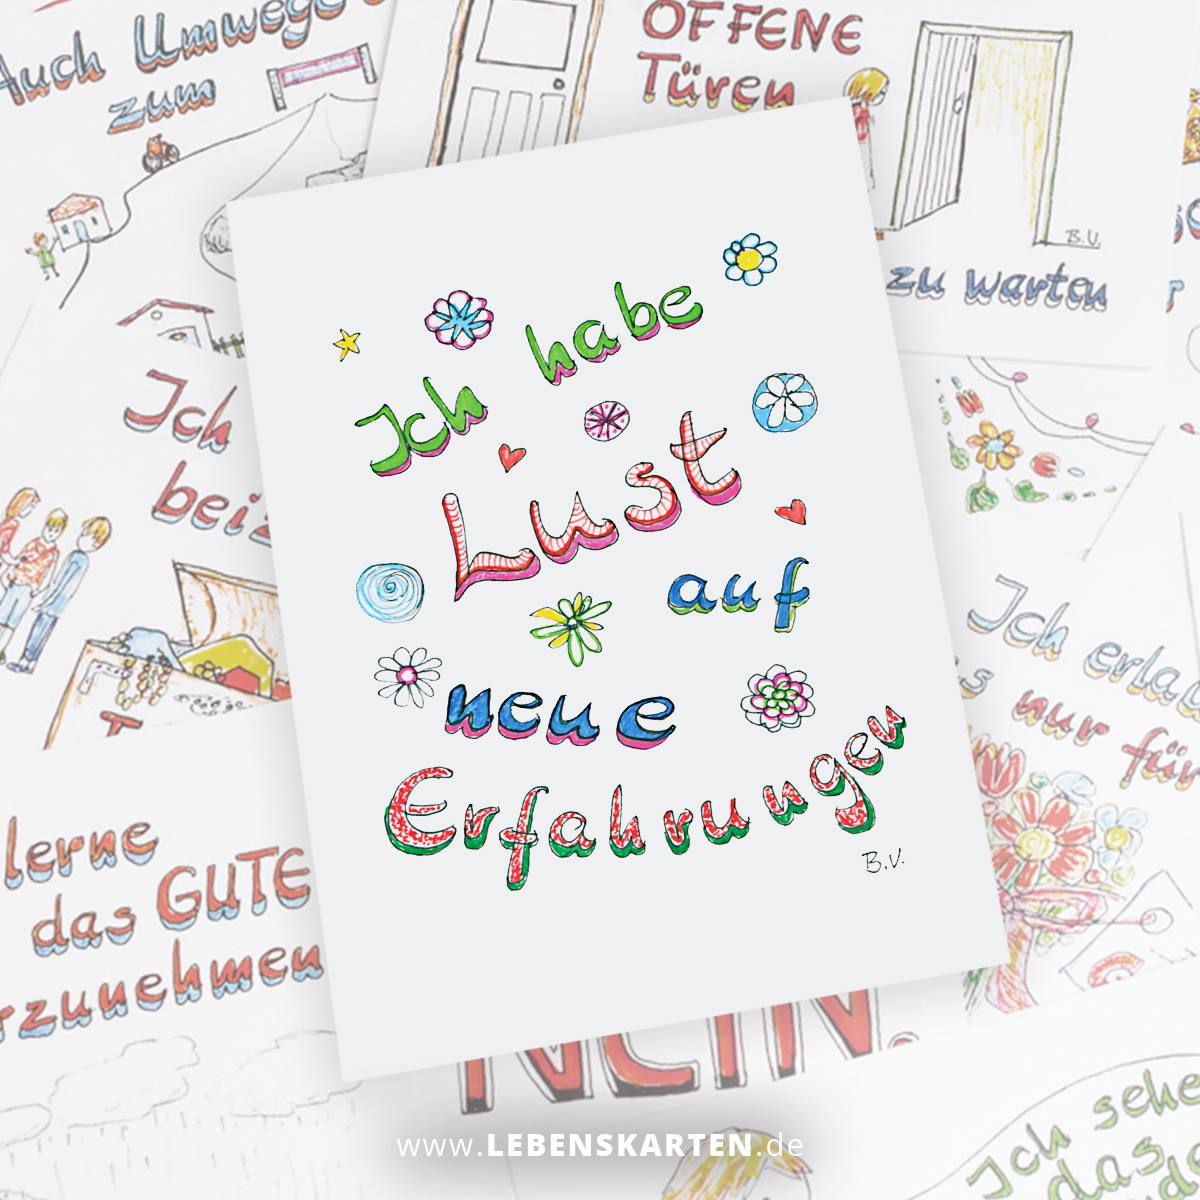 Auch Umwege
zum
OFFENE
Türen
B.V.
zu warten
Ich
Ich habe
Lust
auf
neue
Erfahrungen
B.V.
Ich
nur für
lerne
das GUTE
NEIN.
Ich sehe
das
www.LEBENSKARTEN.de